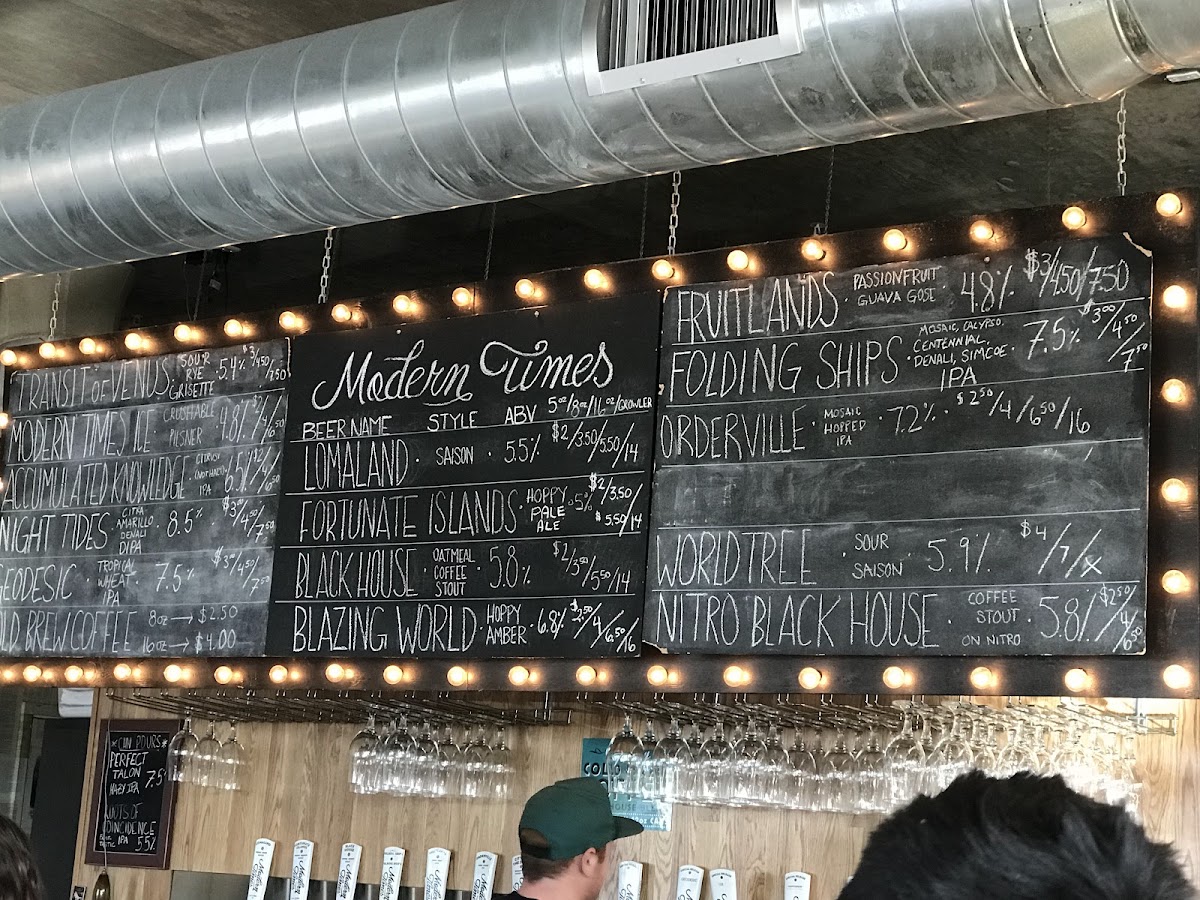 TRANSIT of VENUS · SOUR RYE GRISETTE · 5.4% $3/4.50/7.50
MODERN TIMES ICE CRUSHABLE PILSNER · 4.8%
ACCUMULATED KNOWLEDGE IPA 6.5%
NIGHT TIDES · CITRA AMARILLO DENALI DIPA · 8.5% · $3.00/4.50/7.50
GEODESIC · TROPICAL WHEAT IPA · 7.5% · $3.00/4.50/7.50
BREW COFFEE 8oz → $2.50
16oz → $4.00
Modern Times
BEER NAME STYLE ABV 5oz/8oz/16oz/GROWLER
LOMALAND · SAISON · 5.5% $2/3.50/5.50/14
FORTUNATE ISLANDS · HOPPY PALE ALE · 5% $2/3.50/
$5.50/14
BLACK HOUSE · OATMEAL COFFEE STOUT · 5.8% $2/3.50/5.50/14
BLAZING WORLD · HOPPY AMBER · 6.8% $2.50/4/6.50/16
FRUITLANDS · PASSIONFRUIT GUAVA GOSE · 4.8% $3/4.50/7.50
FOLDING SHIPS · MOSAIC, CALYPSO, CENTENNIAL, DENALI, SIMCOE · IPA 7.5% $3.00/4.50/7.50
ORDERVILLE · MOSAIC HOPPED IPA · 7.2% · $2.50/4/6.50/16
WORLD TREE · SOUR SAISON · 5.9% $4/7/X
NITRO BLACK HOUSE · COFFEE STOUT ON NITRO · 5.8% $2.50/4/6.50
PERFECT
TALON 7.5
IPA
COINCIDENCE
IPA 5.5%